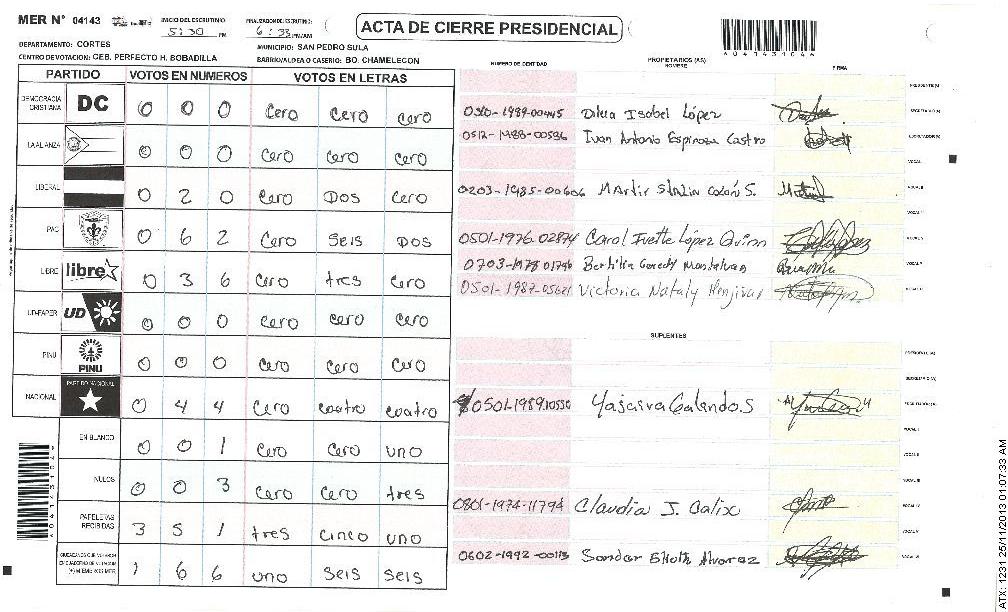 MER N° 04143
INICIO DEL ESCRUTINIO 5:30 PM
FINALIZACION DEL ESCRUTINIO: 6:33 PM/AM
ACTA DE CIERRE PRESIDENCIAL
DEPARTAMENTO: CORTES
MUNICIPIO: SAN PEDRO SULA
CENTRO DE VOTACION: CEB. PERFECTO H. BOBADILLA
BARRIO/ALDEA O CASERIO: BO. CHAMELECON
PARTIDO VOTOS EN NUMEROS VOTOS EN LETRAS
DEMOCRACIA CRISTIANA DC 0 0 0 Cero Cero Cero
LA ALIANZA 0 0 0 Cero Cero Cero
LIBERAL 0 2 0 Cero Dos Cero
PAC 0 6 2 Cero Seis Dos
LIBRE libre 0 3 6 Cero tres Cero
UD-FAPER UD 0 0 0 Cero Cero Cero
PINU PINU 0 0 0 Cero Cero Cero
NACIONAL PARTIDO NACIONAL 0 4 4 Cero cuatro cuatro
EN BLANCO 0 0 1 Cero Cero uno
NULOS 0 0 3 Cero Cero tres
PAPELERAS RECIBIDAS 3 5 1 tres cinco uno
CIUDADANOS QUE VOTARON 1 6 6 uno seis seis
NUMERO DE IDENTIDAD PROPIETARIOS (AS) NOMBRE FIRMA
PRESIDENTE(A)
0510-1989-00415 Dilua Isabel López SECRETARIO(A)
0512-1988-00586 Ivan Antonio Espinoza Castro ESCRUTADOR(A)
VOCAL I
0203-1985-00606 Martir Stalin Colón S. VOCAL II
VOCAL III
0501-1976-02874 Carol Ivette López Quiron
0703-1978 01796 Bertilia
0501-1987-05621 Victoria Nataly Menjivar
SUPLENTES
PRESIDENTE(A)
SECRETARIO(A)
0501-1989.10530 Yajaira Galindo.S ESCRUTADOR(A)
VOCAL I
VOCAL II
VOCAL III
0801-1974-11794 Claudia J. Calix VOCAL IV
VOCAL V
0602-1992-00113 Sandar Alvarez
0404143104
ATX: 1231 25/11/2013 01:07:33 AM